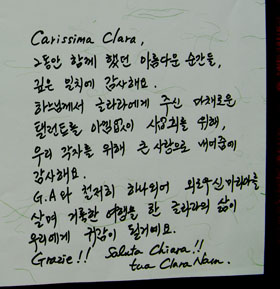 Carissima Clara,
그동안 함께 했던 아름다운 순간들,
깊은 일치에 감사해요.
하느님께서 글라라에게 주신 다채로운
탤런트를 아낌없이 사업회를 위해,
우리 각자를 위해 큰 사랑으로 내어줌이
감사해요.
G.A와 철저히 하나되어 외로우신 마리아를
살며 거룩한 여행을 한 글라라의 삶이
우리에게 귀감이 될거예요.
Grazie!! Saluta Chiara!!
tua Clara Nam.